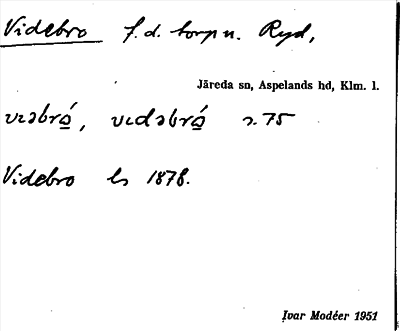 Videbro f.d. torp u. Ryd,
Järeda sn, Aspelands hd, Klm. l.
vɩəbrå̲, vɩdəbrå̲ s. 75
Videbro ls 1878.
Ivar Modéer 1951